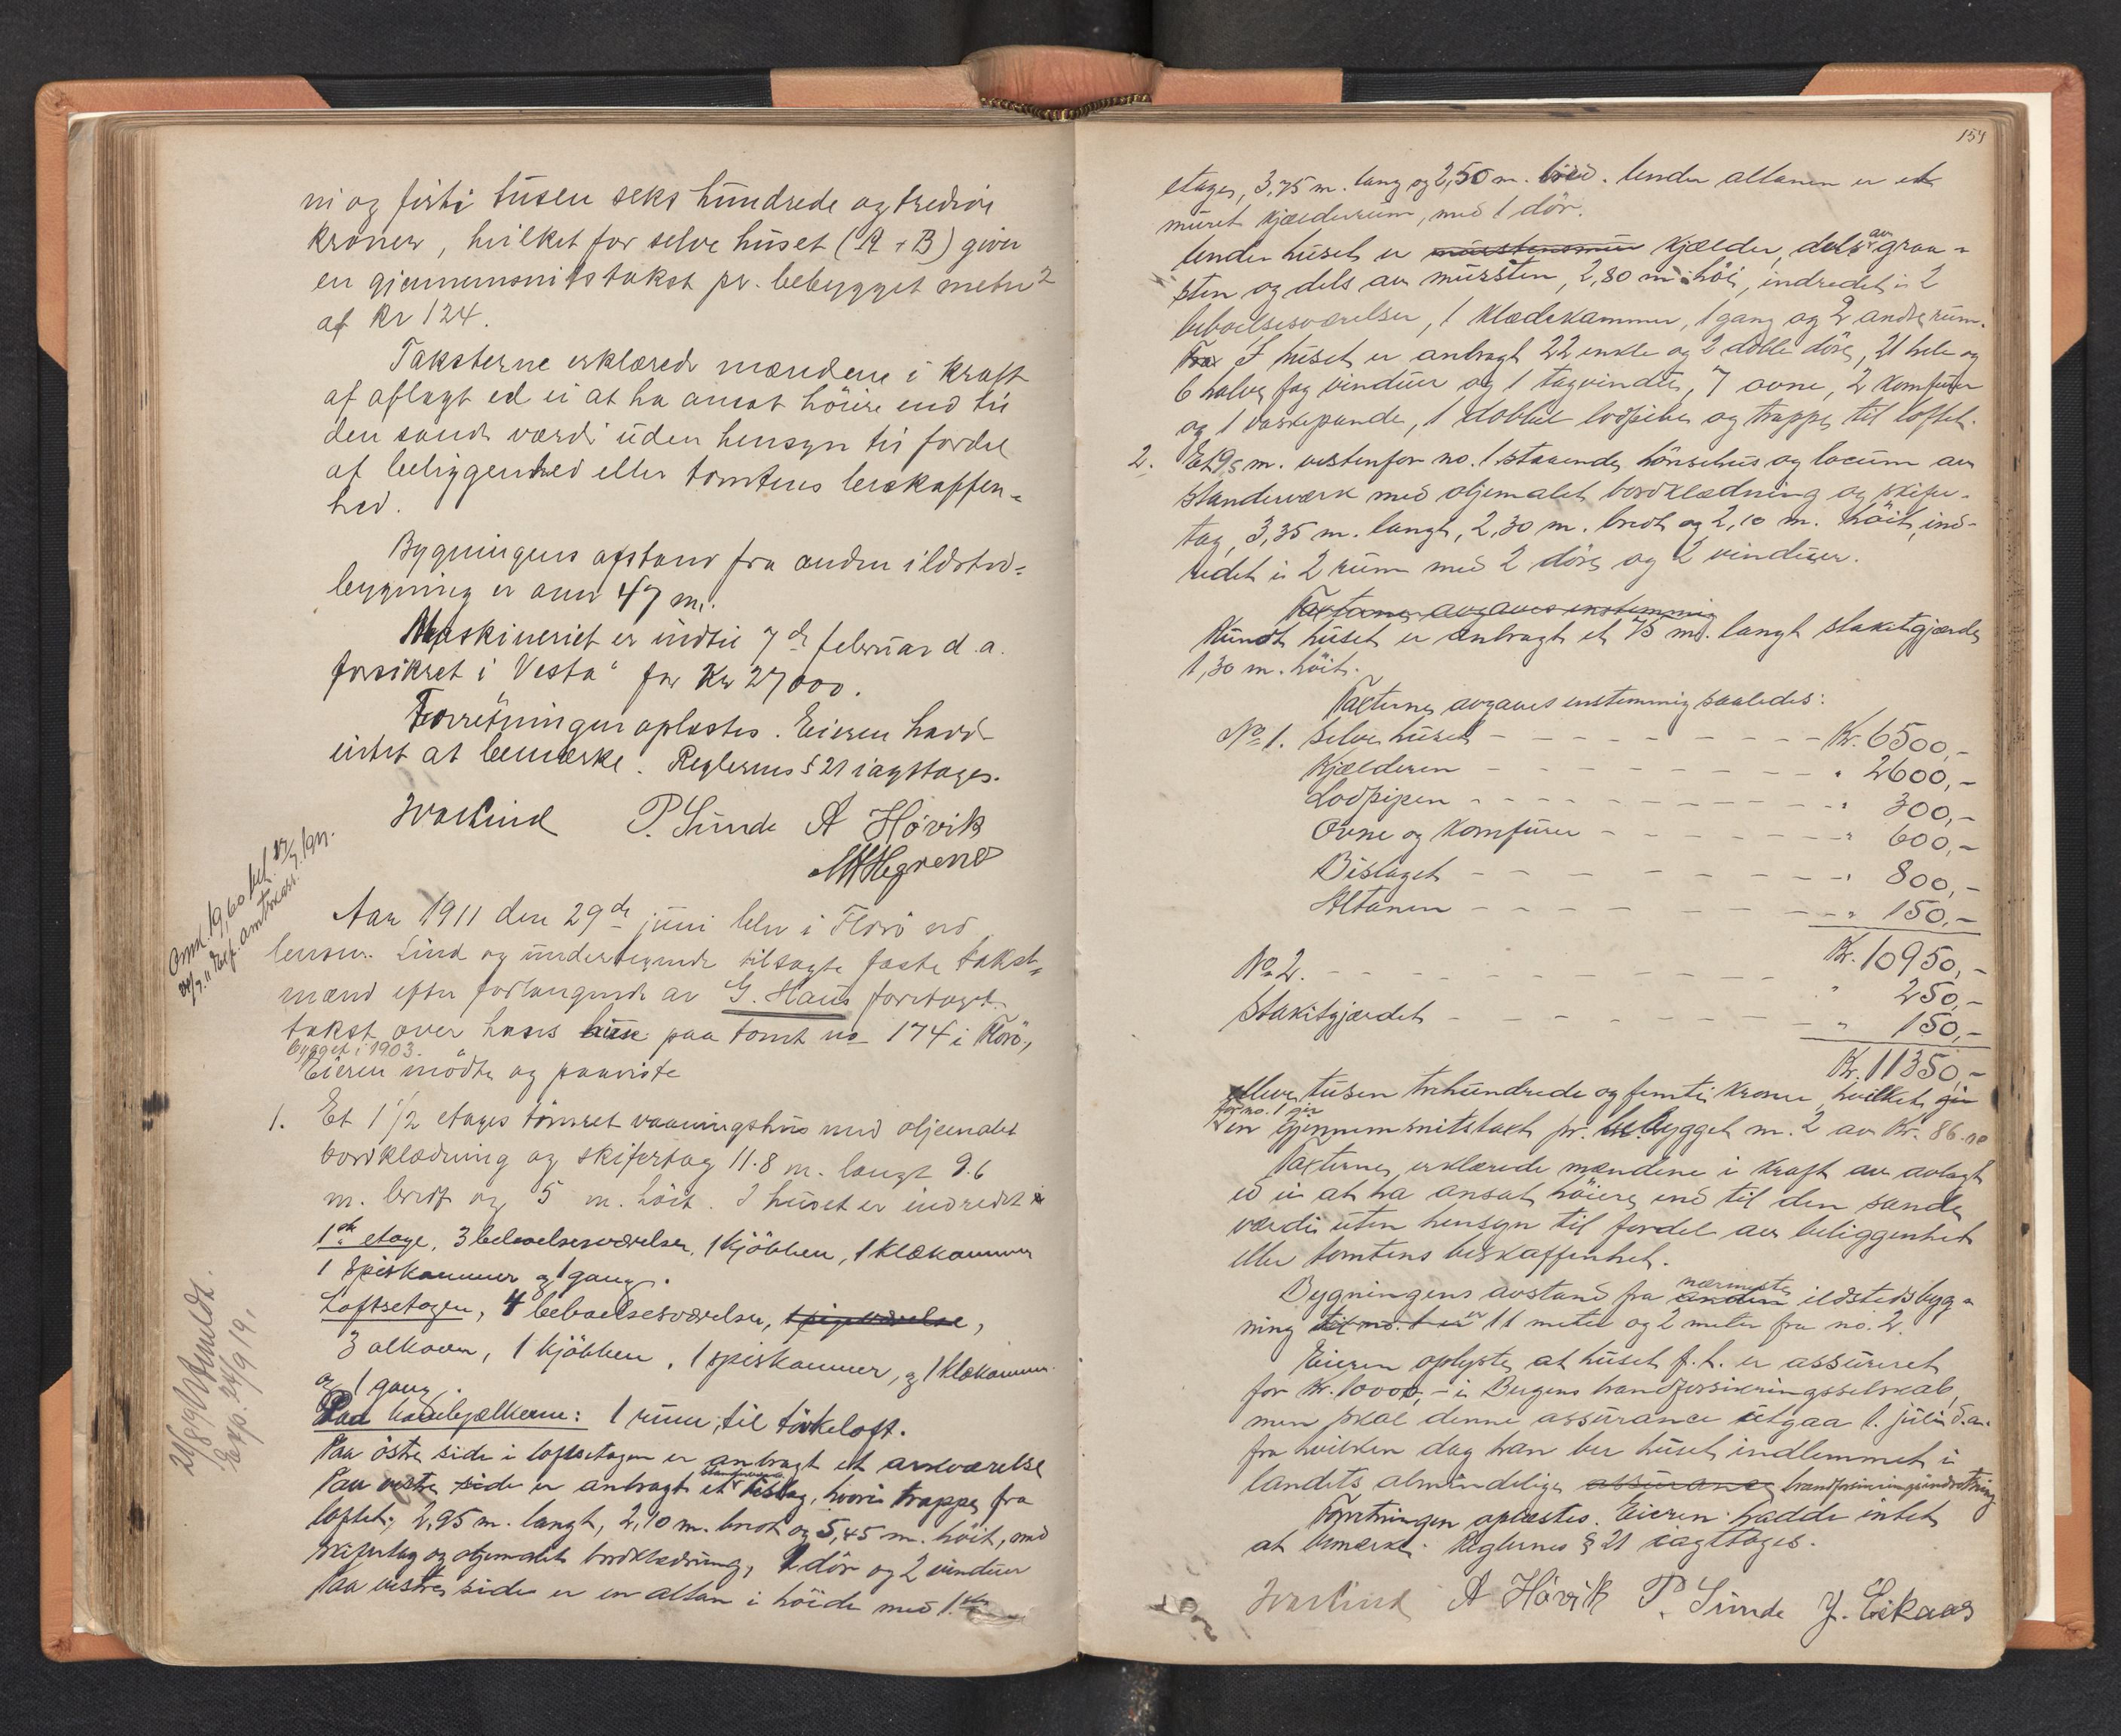 ni og firti tusen seks hundrede og tredive
kroner, hvilket for selve huset (A + B) giver
en gjennemsnitstakst pr. bebygget meter 2
af Kr 124.
Taksterne erklærede mændene i kraft
af aflagt ed ei at ha ansat höiere end til
den sande værdi uden hensyn til fordel
af beliggenhed eller tomtens beskaffen=
hed.
Bygningens afstand fra anden ildsted=
bygning er over 47 m.
Maskineriet er indtil 7de februar d.a.
forsikret i "Vesta" for Kr 27000.
Forretningen oplæstes. Eieren havde
intet at bemerke. Reglernes § 21 iagttages.
Ivar Lind P. Sunde A Høvik
Aar 1911 den 29de juni blev i Florö ved
lensm. Lind og undertegnede tilsagte faste takst=
mænd efter forlangende av G. Haus foretaget
takst over hans hus paa tomt no 174 i Florö,
bygget i 1903.
Eieren mödte og paaviste
1. Et 1 1/2 etages tömret vaaningshus med oljemalet
bordklædning og skifertag 11.8 m. langt 9.6
m. bredt og 5 m. höit. I huset er indredet i
1ste etage, 3 beboelsesværelser, 1 kjökken, 1 klækammer
1 spiskammer og 1 gang.
Loftsetagen, 4 beboelsesværelser,
3 alkover, 1 kjökken, 1 spiskammer, og 1 klækammer
og 1 gang.
Paa hanebjælkerne: 1 rum til törkeloft.
Paa östre side i loftsetagen er anbragt et arkværelse
Paa vestre side er anbragt et bislag, hvori trappe fra
loftet, 2,95 m. langt, 2,10 m. bredt og 5,45 m. höit, med
skifertag og oljemalet bordklædning, 1 dör og 2 vinduer
Paa vestre side er en altan i höide med 1.ste
154
etage, 3,75 m. lang og 2,50 m. bred. Under altanen er et
muret kjælderrum, med 1 dör.
Under huset er murstensmur kjælder, dels av graa=
sten og dels av mursten, 2,80 m. höi, indredet i 2
beboelsesværelser, 1 klædekammer, 1 gang og 2 andre rum.
I huset er anbragt 22 enkle og 2 doble döre, 21 hele og
6 halve fag vinduer og 1 tagvindu, 7 ovne, 2 komfurer
og 1 vaskepande, 1 dobbel lodpibe og trappe til loftet.
2. Et 9,5 m. vestenfor no. 1 staaende hönsehus og locum av
stenderværk med oljemalet bordklædning og skifer-
tag, 3,35 m. langt, 2,30 m. bredt og 2,10 m. höit, ind-
redet i 2 rum med 2 döre og 2 vinduer.
Taxterne avgaves enstemmig
Rundt huset er anbragt et 75 m. langt stakitgjærde
1,30 m. höit.
Taxterne avgaves enstemmig saaledes:
No 1. Selve huset - Kr. 6500,-
Kjælderen - " 2600,-
Lodpipen - " 300,-
Ovne og komfurer - " 600,-
Bislaget - " 800,-
Altanen - " 150,-
Kr. 10950,-
No 2. - " 250,-
Stakitgjærdet - " 150,-
Kr. 11350,-
elleve tusen trehundrede og femti kroner, hvilket gir
for no. 1 gir
en gjennemsnitstaxt pr. bebygget m. 2 av Kr. 86.
Taxterne erklærede mændene i kraft av avlagt
ed ei at ha ansat höiere end til den sande
værdi uten hensyn til fordel av beliggenhet
eller tomtens beskaffenhet.
nærmeste
Bygningens avstand fra anden ildstedsbyg=
ning til no. 1 er 11 meter og 2 meter fra no. 2.
Eieren oplyste at huset f. t. er assureret
for Kr. 10000,- i Bergens brandforsikringsselskab,
men skal denne assurance utgaa 1. juli d.a.
fra hvilken dag han ber huset indlemmet i
landets almindelige assurance brandforsikringsindretning
Forretningen oplæstes. Eieren hadde intet
at bemærke. Reglernes § 21 iagttages.
Ivar Lind A Høvik P. Sunde J. Eikaas